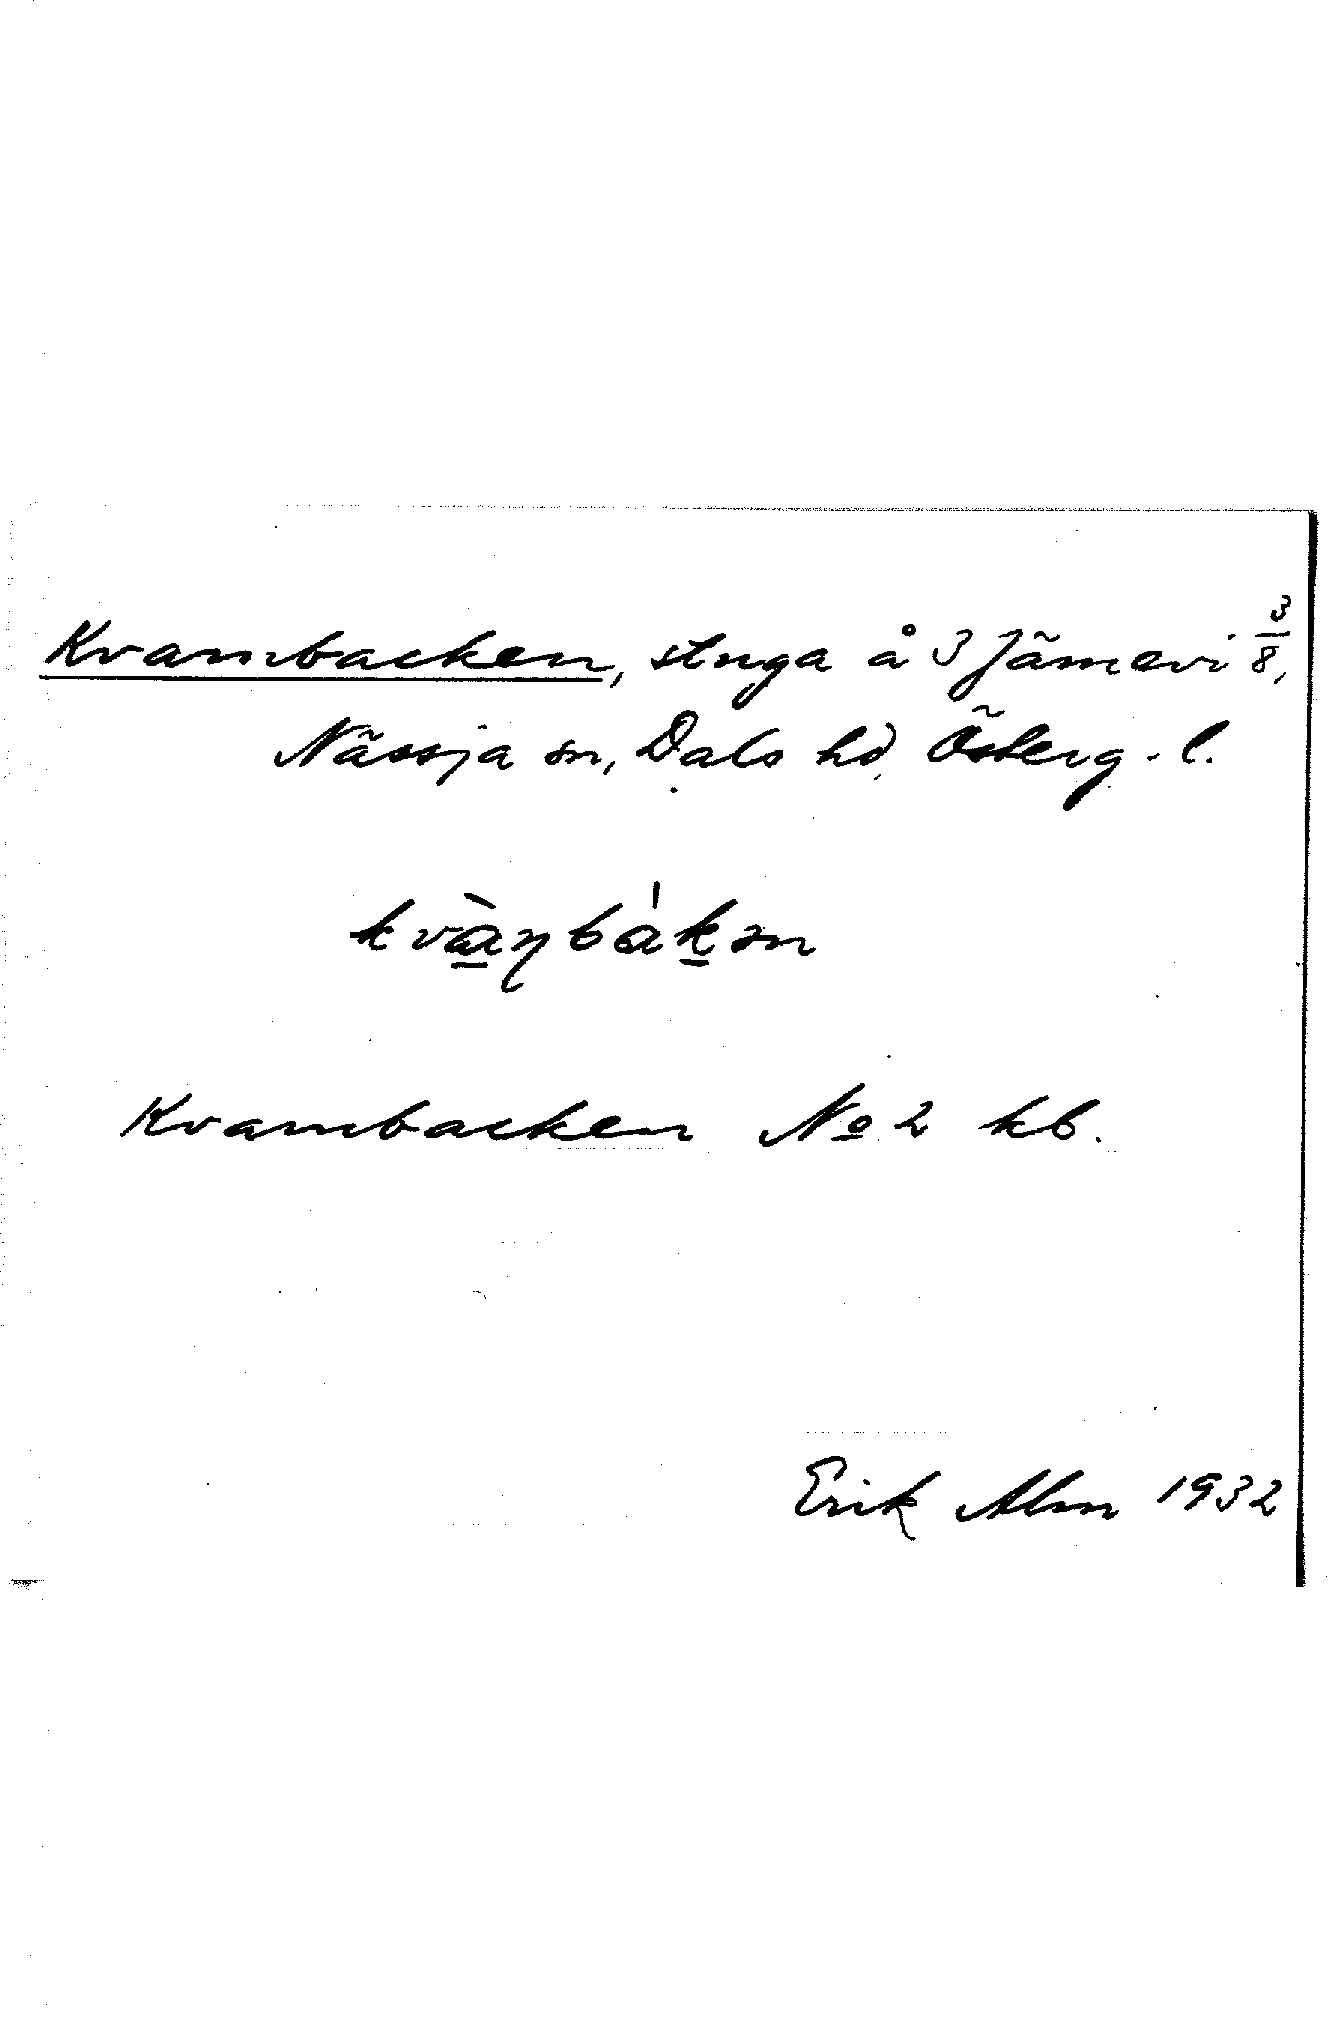 Kvarnbacken, stuga å 3 Jämevi 3/8,
Nässja sn, Dals hd, Österg. l.
kvànbákən
Kvarnbacken No 2 kb.
Erik Alm 1932